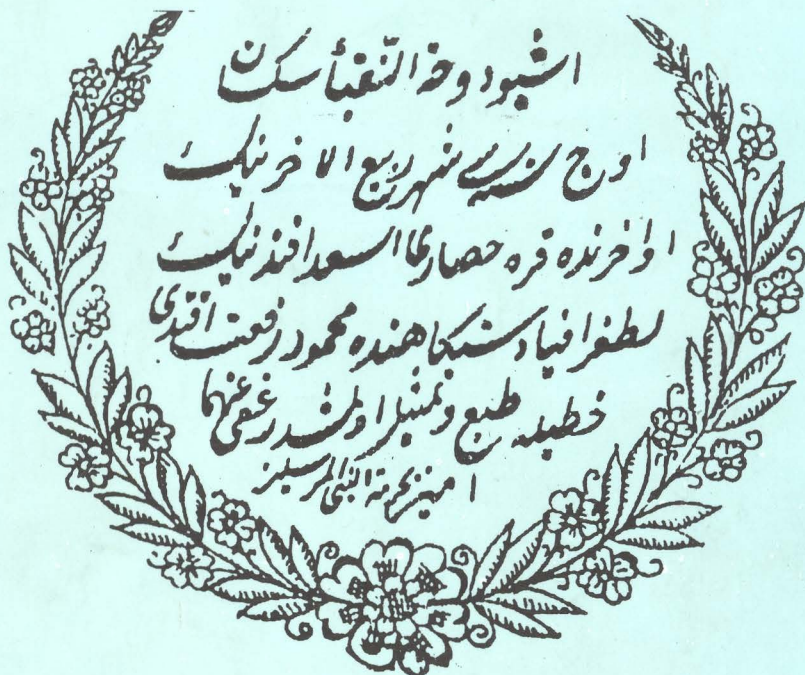 اشبو دوحة النقبا سكسان
اوچ سنه سی شهر ربیع الاخرینك
اواخرنده قره حصاری السید اسعد افندینك
لطغرافیا دستكاهنده محمود رفعت افندی
خطیله طبع و تمثیل اولمشدر عفی عنهما
امین بحرمة النبی المرسلین